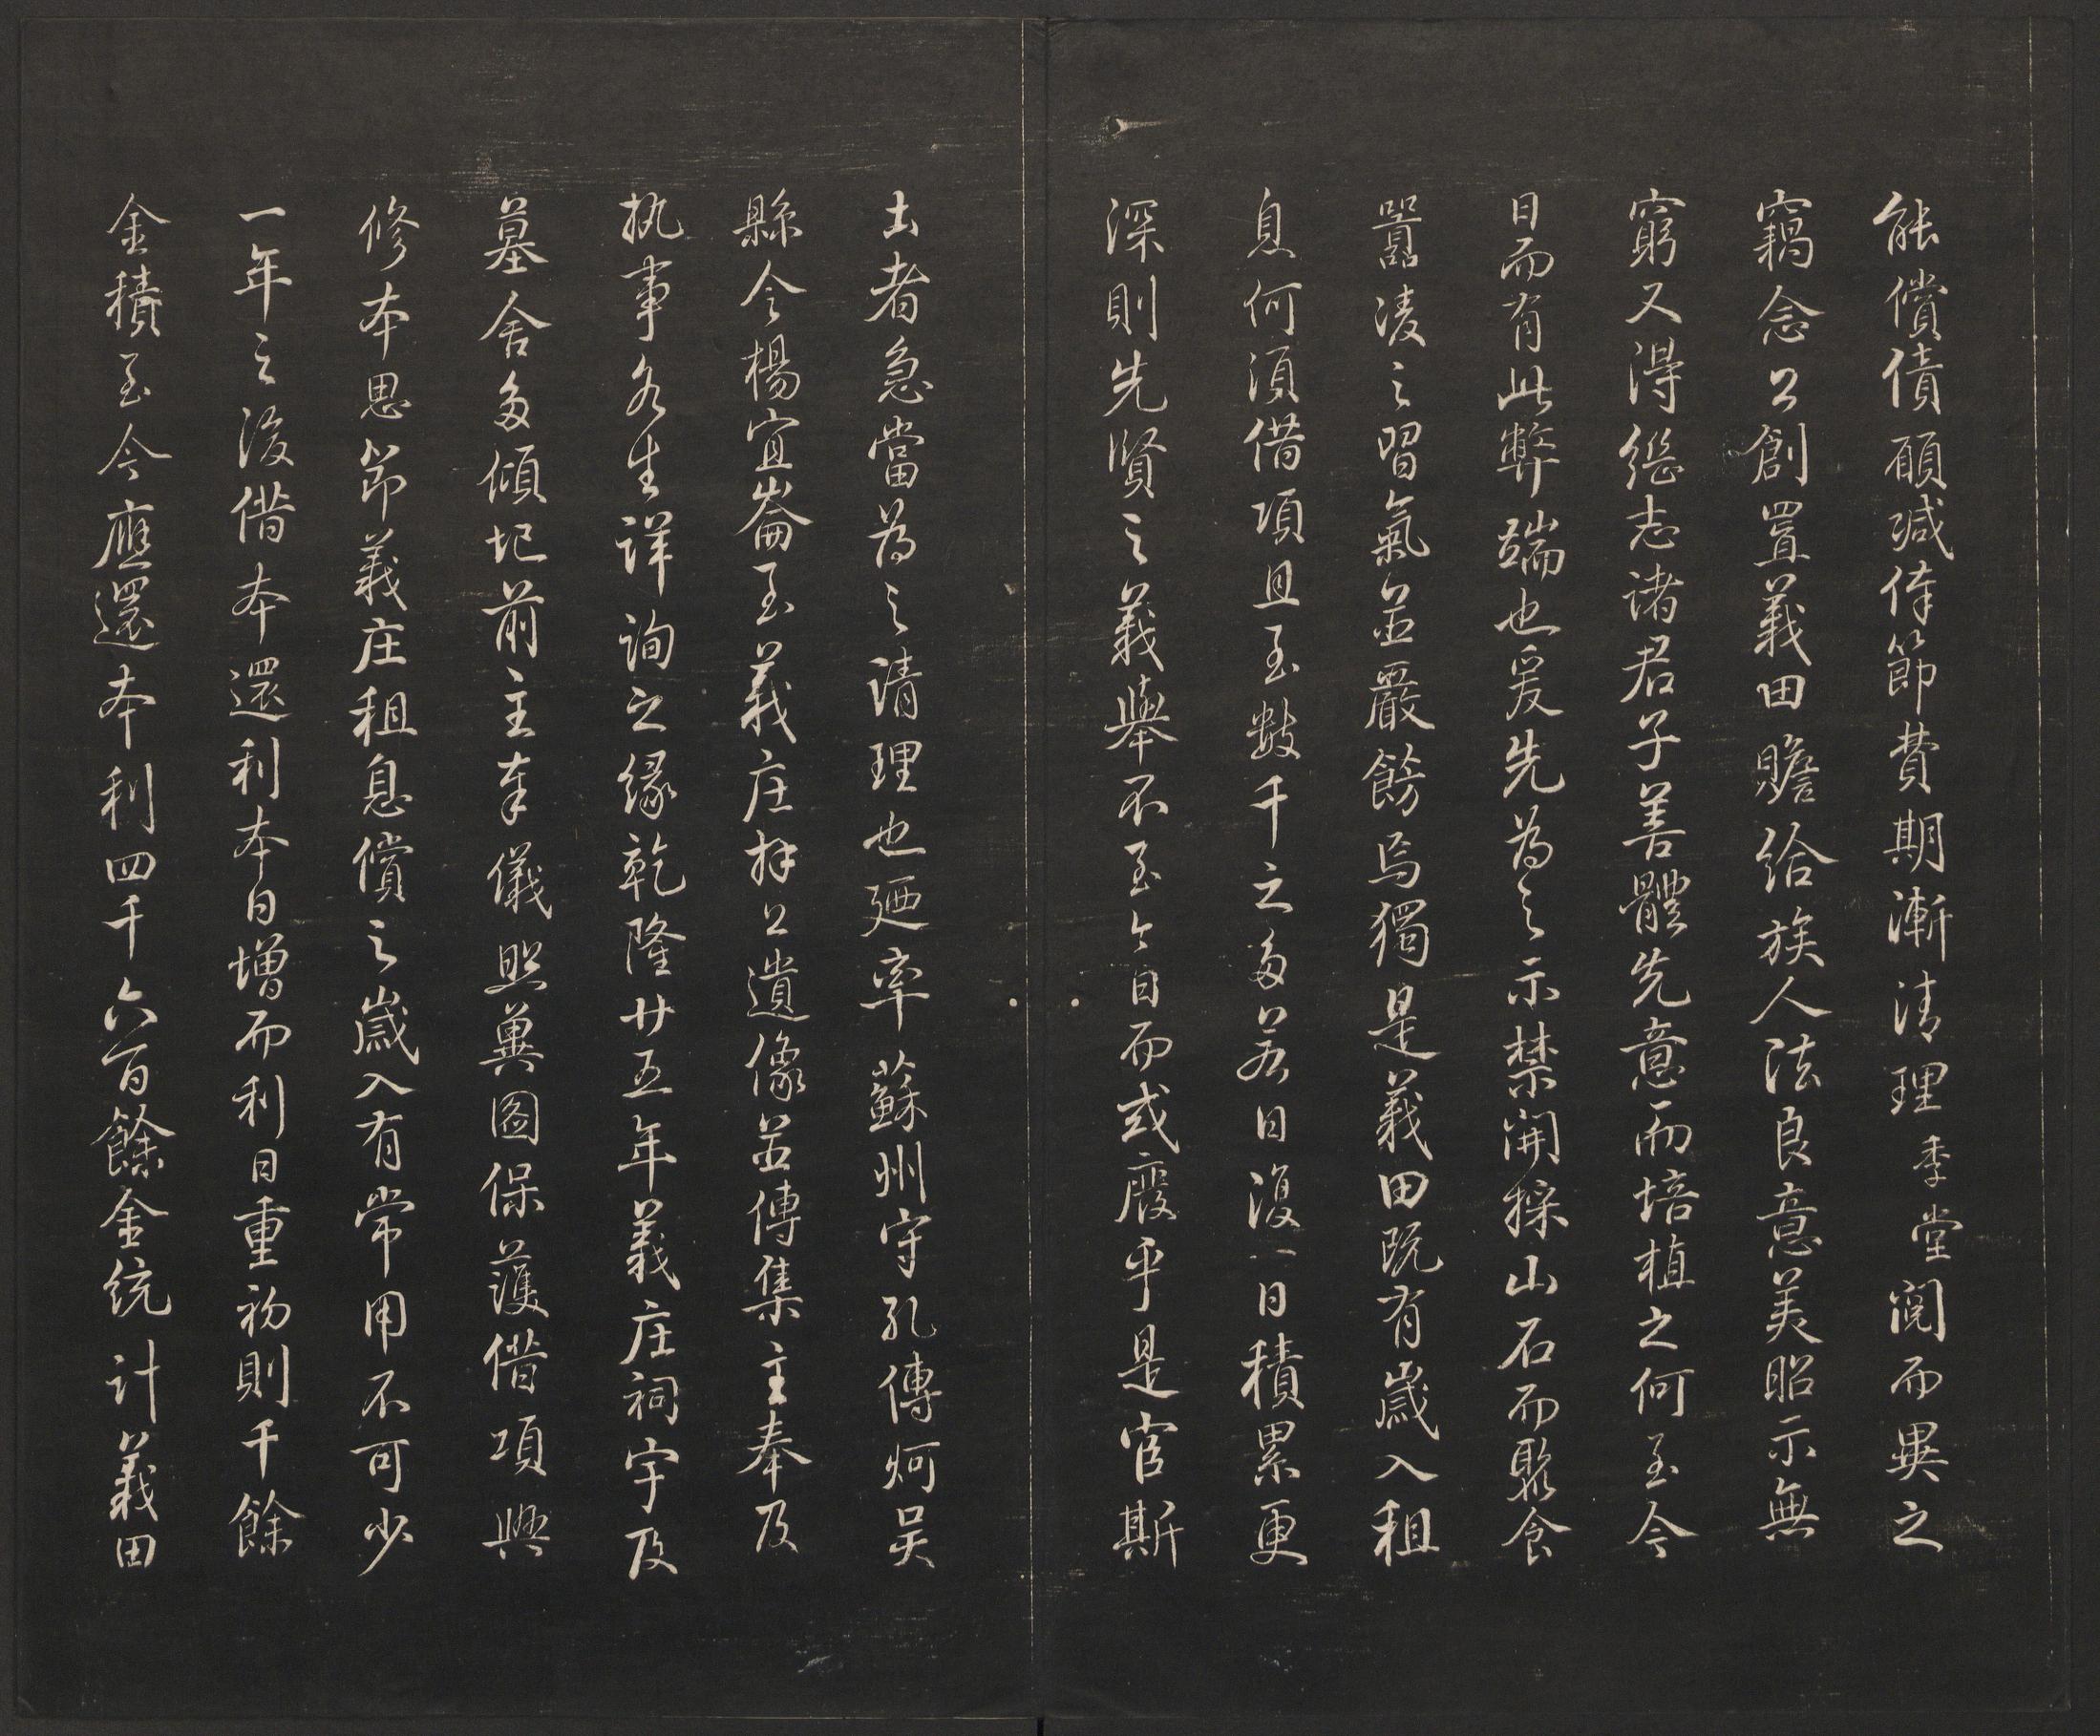 能償債願減俸節費期漸清理季堂閱而異之
竊念公創置義田贍給族人法良意美昭示無
窮又得繼志諸君子善體先意而培植之何至今
日而有此弊端也爰先為之示禁開採山石而聚食
囂凌之習氣並嚴飭焉獨是義田既有歲入租
息何須借項且至數千之多若日復一日積累更
深則先賢之義舉不至今日而或廢乎是官斯
土者急當為之清理也廼率蘇州守孔傳炯吳
縣令楊宜崙至義庄拜公遺像並傳集主奉及
執事各生詳詢之緣乾隆廿五年義庄祠宇及
墓舍多傾圮前主奉儀照冀圖保護借項興
修本思節義庄租息償之歲入有常用不可少
一年之後借本還利本日增而利日重初則千餘
金積至今應還本利四千六百餘金統計義田